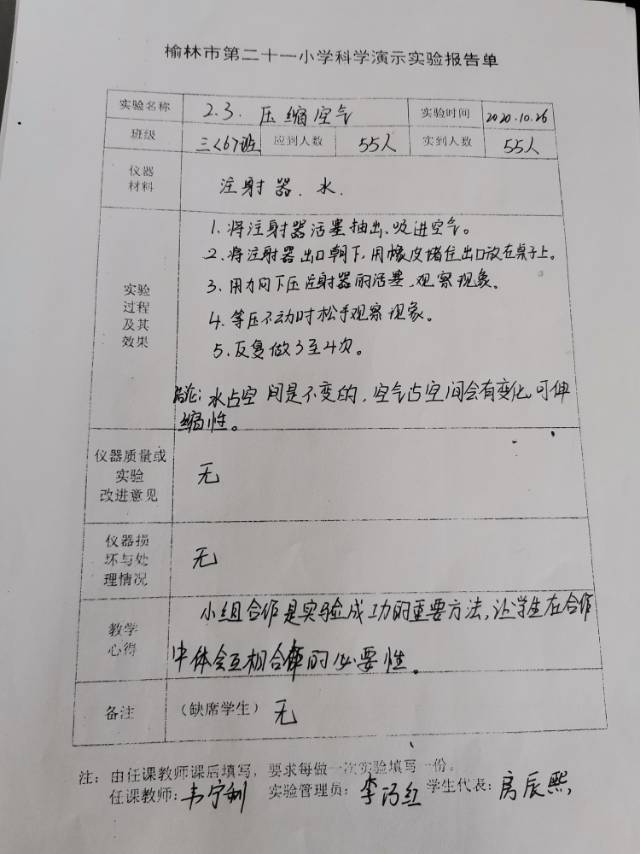 榆林市第二十一小学科学演示实验报告单
实验名称 2.3. 压缩空气 实验时间 2020.10.26
班级 三<6>班 应到人数 55人 实到人数 55人
仪器
材料
注射器、水.
实验
过程
及其
效果
1.将注射器活塞抽出、吸进空气。
2.将注射器出口朝下,用橡皮堵住出口放在桌子上。
3.用力向下压注射器的活塞,观察现象。
4.等压不动时松手观察现象。
5.反复做3至4次。
结论:水占空间是不变的,空气占空间会有变化,可伸
缩性。
仪器质量或
实验
改进意见
无
仪器损
坏与处
理情况
无
教学
心得
小组合作是实验成功的重要方法,让学生在合作
中体会互相合作的必要性。
备注 (缺席学生) 无
注:由任课教师课后填写,要求每做一次实验填写一份。
任课教师: 实验管理员: 学生代表:房辰熙